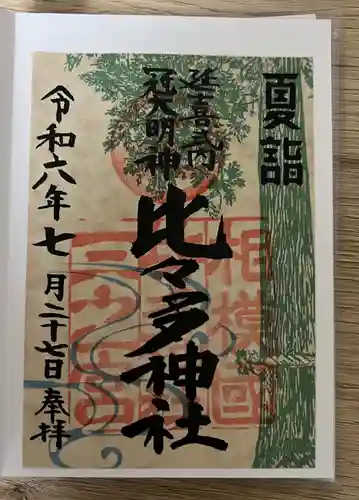 夏詣
延喜式内
冠大明神
比々多神社
相模國
三之宮
令和六年七月二十七日奉拝